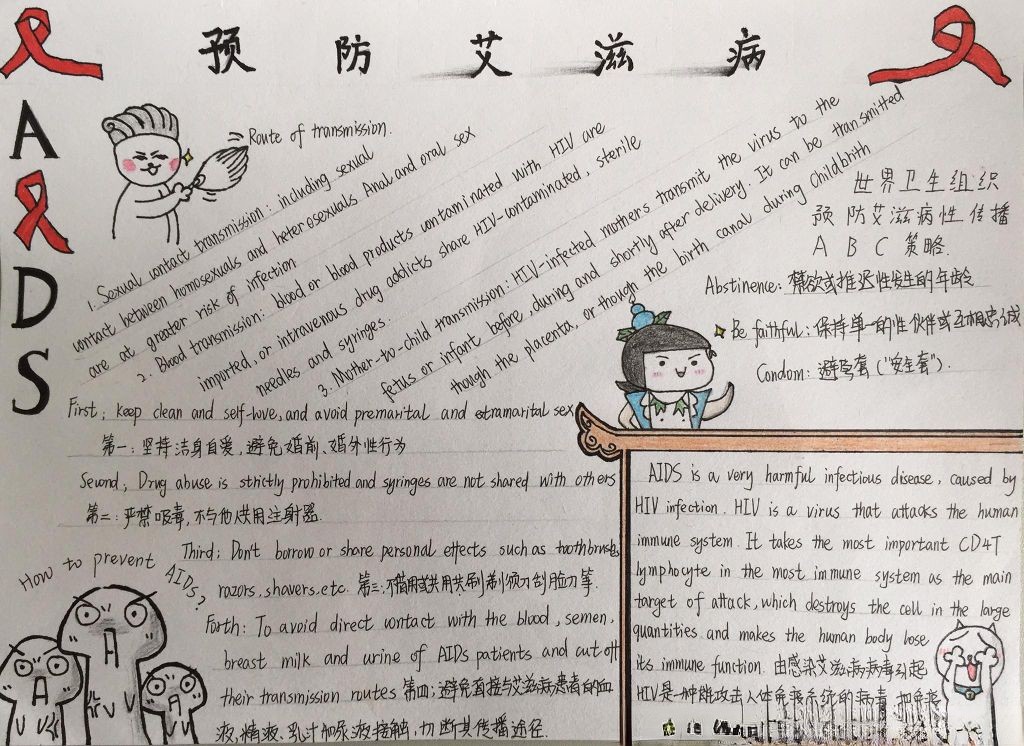 预防艾滋病
AIDS
Route of transmission.
1. Sexual contact transmission: including sexual
contact between homosexuals and heterosexuals. Anal and oral sex
are at greater risk of infection
2. Blood transmission: blood or blood products contaminated with HIV are
imported, or intravenous drug addicts share HIV-contaminated, sterile
needles and syringes.
3. Mother-to-child transmission: HIV-infected mothers transmit the virus to the
fetus or infant before, during and shortly after delivery. It can be transmitted
though the placenta, or though the birth canal during childbrith
世界卫生组织
预防艾滋病性传播
A B C 策略.
Abstinence: 禁欲或推迟性发生的年龄
Be faithful: 保持单一的性伙伴或互相忠诚
Condom: 避孕套 ("安全套").
First, keep clean and self-love, and avoid premarital and extramarital sex
第一: 坚持洁身自爱, 避免婚前、婚外性行为
Second, Drug abuse is strictly prohibited and syringes are not shared with others
第二: 严禁吸毒, 不与他人共用注射器.
How to prevent AIDS?
Third; Don't borrow or share personal effects such as toothbrush,
razors, shavers, etc. 第三: 不借用或共用牙刷 剃须刀 刮脸刀 等.
Forth: To avoid direct contact with the blood, semen,
breast milk and urine of AIDs patients and cut off
their transmission routes 第四: 避免直接与艾滋病患者的血
液, 精液、乳汁和尿液接触, 切断其传播途径.
AIDS is a very harmful infectious disease, caused by
HIV infection. HIV is a virus that attacks the human
immune system. It takes the most important CD4T
lymphocyte in the most immune system as the main
target of attack, which destroys the cell in the large
quantities and makes the human body lose
its immune function. 由感染艾滋病病毒引起
HIV是一种能攻击人体免疫系统的病毒. 把免疫